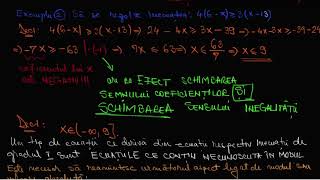 Exemplu ② Să se rezolve inecuația: 4(6-x) ≥ 3(x-13)
Deci: 4(6-x) ≥ 3(x-13) ⟹ 24-4x ≥ 3x-39 ⟹ -4x-3x ≥ -39-24
⟹ -7x ≥ -63 | ·(-1) ⟹ 7x ≤ 63 ⟹ x ≤ 63/7 ⟹ x ≤ 9
coeficientul lui x
NEGATIV!!!
are ca EFECT SCHIMBAREA
SEMNULUI COEFICIENȚILOR ȘI
SCHIMBAREA SENSULUI INEGALITĂȚII
Deci: x∈(-∞, 9].
Un tip de ecuații ce derivă din ecuații respectiv inecuații de
gradul I sunt ECUAȚIILE CE CONȚIN NECUNOSCUTA ÎN MODUL
Este necesar să reamintesc următorul aspect legat de modul sau